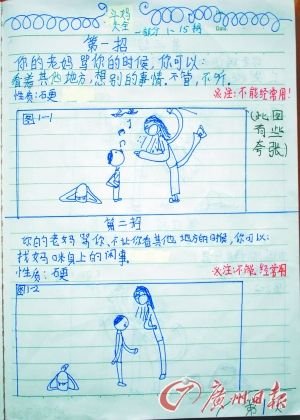 斗妈
大全
一部分1-15招
Date.
第一招
你的老妈骂你的时候,你可以:
看着其他地方,想别的事情。不管,不听。
性质:石更
※注:不能经常用!
图1-1
(此图
有些
夸张)
第二招
你的老妈骂你,不让你看其他地方的时候,你可以:
找妈咪身上的闲事。
性质:石更
※注:不能经常用
图1-2
第
廣州日报